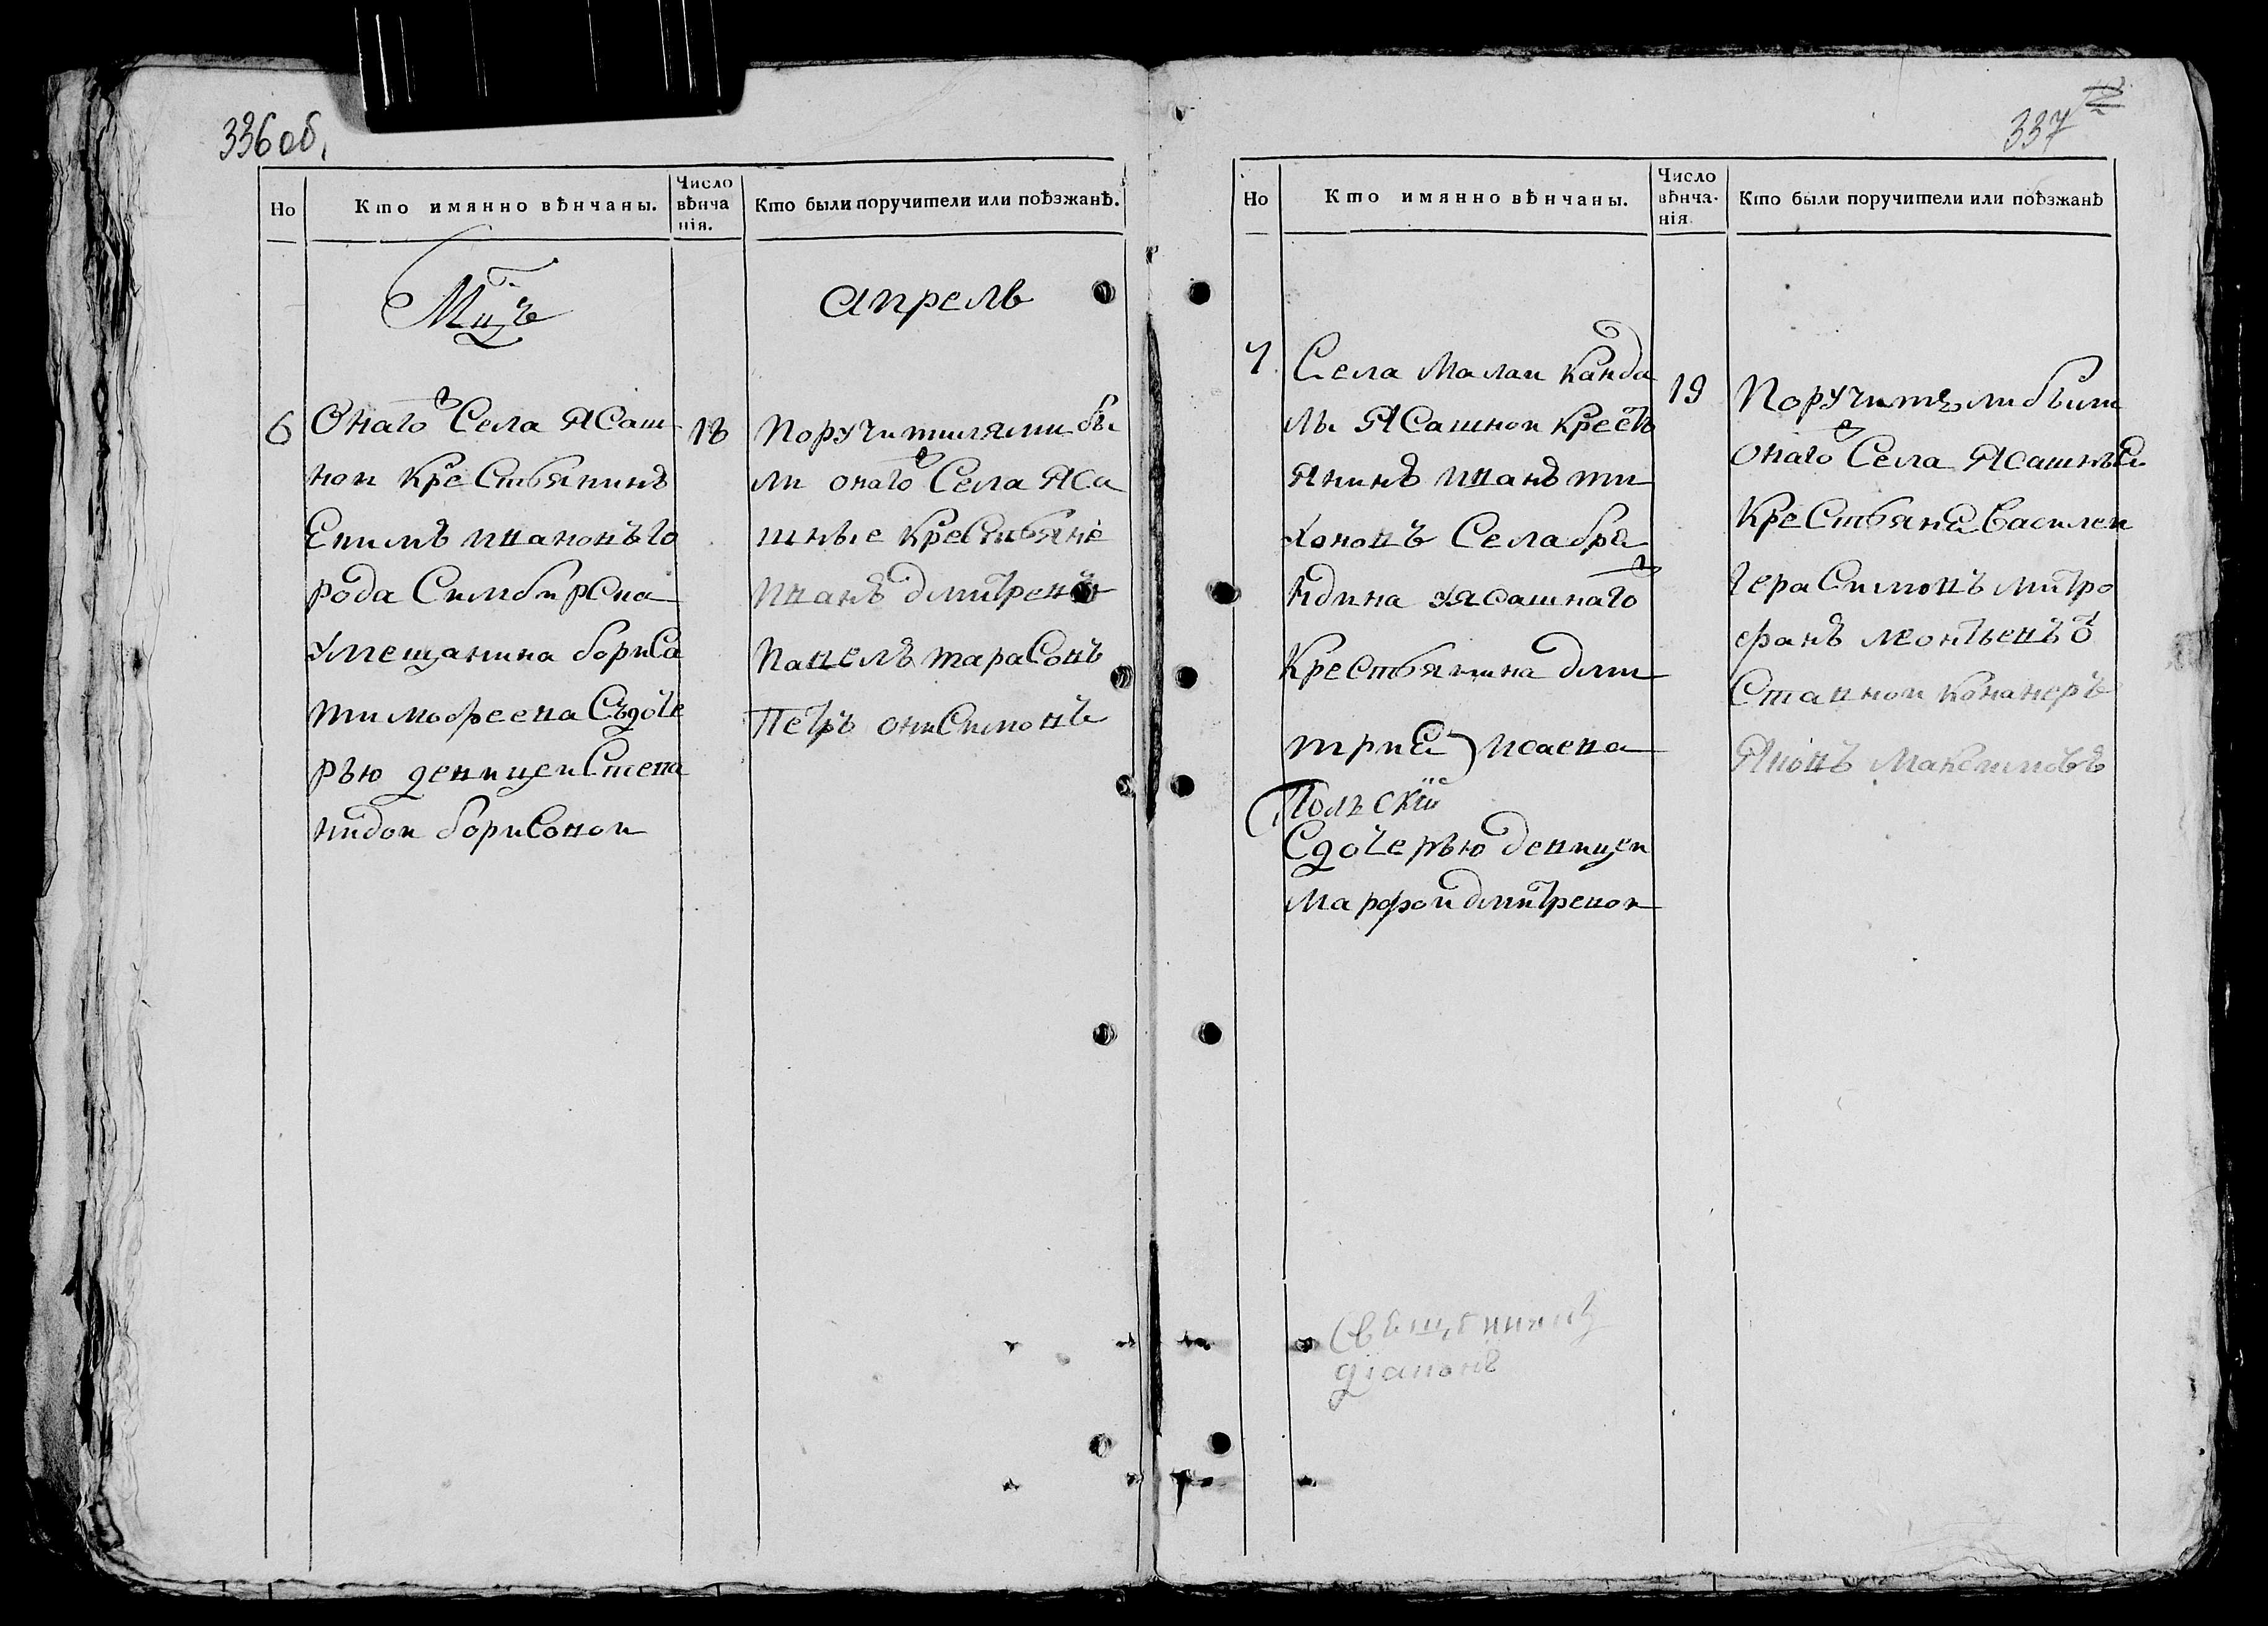 336 об.
Но
Кто имянно вѣнчаны.
Число
вѣнча
нія.
Кто были поручители или поѣзжанѣ.
Мцъ
апрель
6
Онаго Села Ясаш
ной крестьянинъ
Евимъ ивановъ го
рода Симбирска
умещанина бориса
тимофеева Съдоче
рью девицеи Степа
нидои борисовои
18
поручителями бы
ли онаго Села Яса
шные крестьяне
иванъ дмитрев
павелъ тарасовъ
Петръ онисимовъ
337
Но
Кто имянно вѣнчаны.
Число
вѣнча-
нія.
Кто были поручители или поѣзжанѣ
7
Села Малаи канда
лы Ясашнои кресть
янинъ иванъ ти
хоновъ Села бря
ндина уясашнаго
крестьянина дми
трия исаева
Польскій
Сдочерью девицеи
марфои дмитревои
19
Поручители были
онаго Села Ясашныя
крестьяне василеи
герасимовъ митро
фанъ леонтьевъ о
Ставнои
Яковъ максимовъ
Священникъ
діаконъ